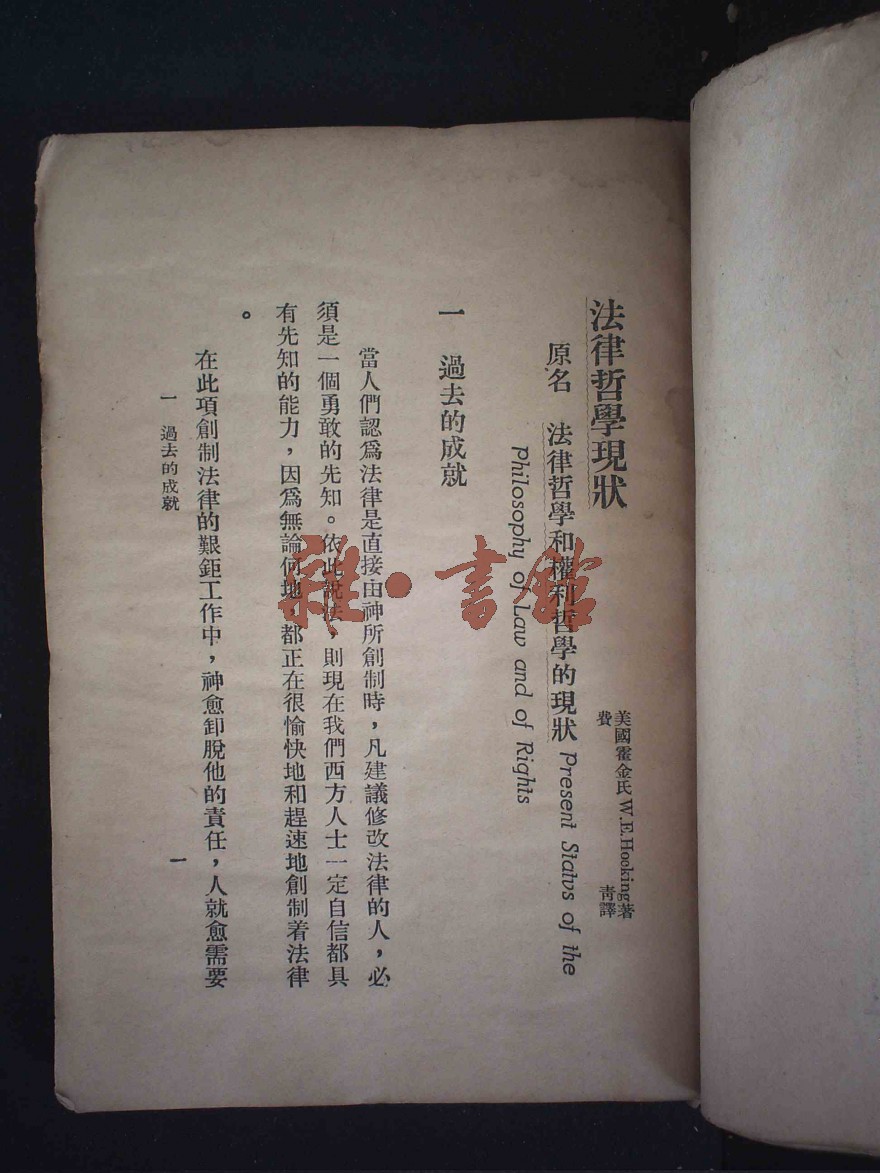 法律哲學現狀
美國霍金氏W.E.Hocking著
費 青譯
原名 法律哲學和權利哲學的現狀 Present Statvs of the
Philosophy of Law and of Rights
一 過去的成就
當人們認爲法律是直接由神所創制時，凡建議修改法律的人，必
須是一個勇敢的先知。依此說法，則現在我們西方人士一定自信都具
有先知的能力，因爲無論何地，都正在很愉快地和趕速地創制着法律
。
在此項創制法律的艱鉅工作中，神愈卸脫他的責任，人就愈需要
一 過去的成就
一
雜·書館